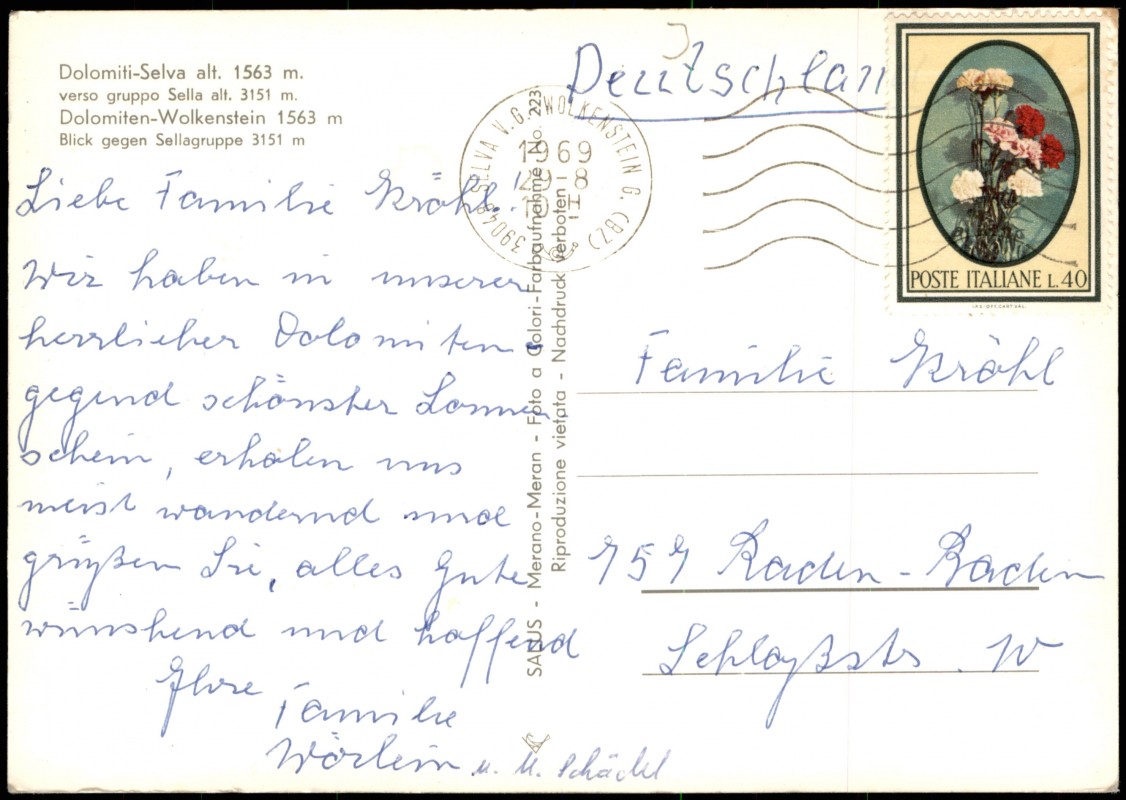 Dolomiti-Selva alt. 1563 m.
verso gruppo Sella alt. 3151 m.
Dolomiten-Wolkenstein 1563 m
Blick gegen Sellagruppe 3151 m
Liebe Familie Kröhl!
Wir haben in unserer
herrlicher Dolomiten-
gegend schönster Sonnen
schein, erholen uns
meist wandernd und
grüßen Sie, alles Gute
wünshend und hoffend
Ihre
Familie
Wörlein u. M. Schädel
SALUS - Merano-Meran - Foto a Colori-Farbaufnahme No. 223
Riproduzione vietata - Nachdruck verboten
39048 SELVA V.G. WOLKENSTEIN G. (BZ)
1969
29 8
Deutschlan
POSTE ITALIANE L. 40
Familie Kröhl
757 Baden-Baden
Schloßstr.